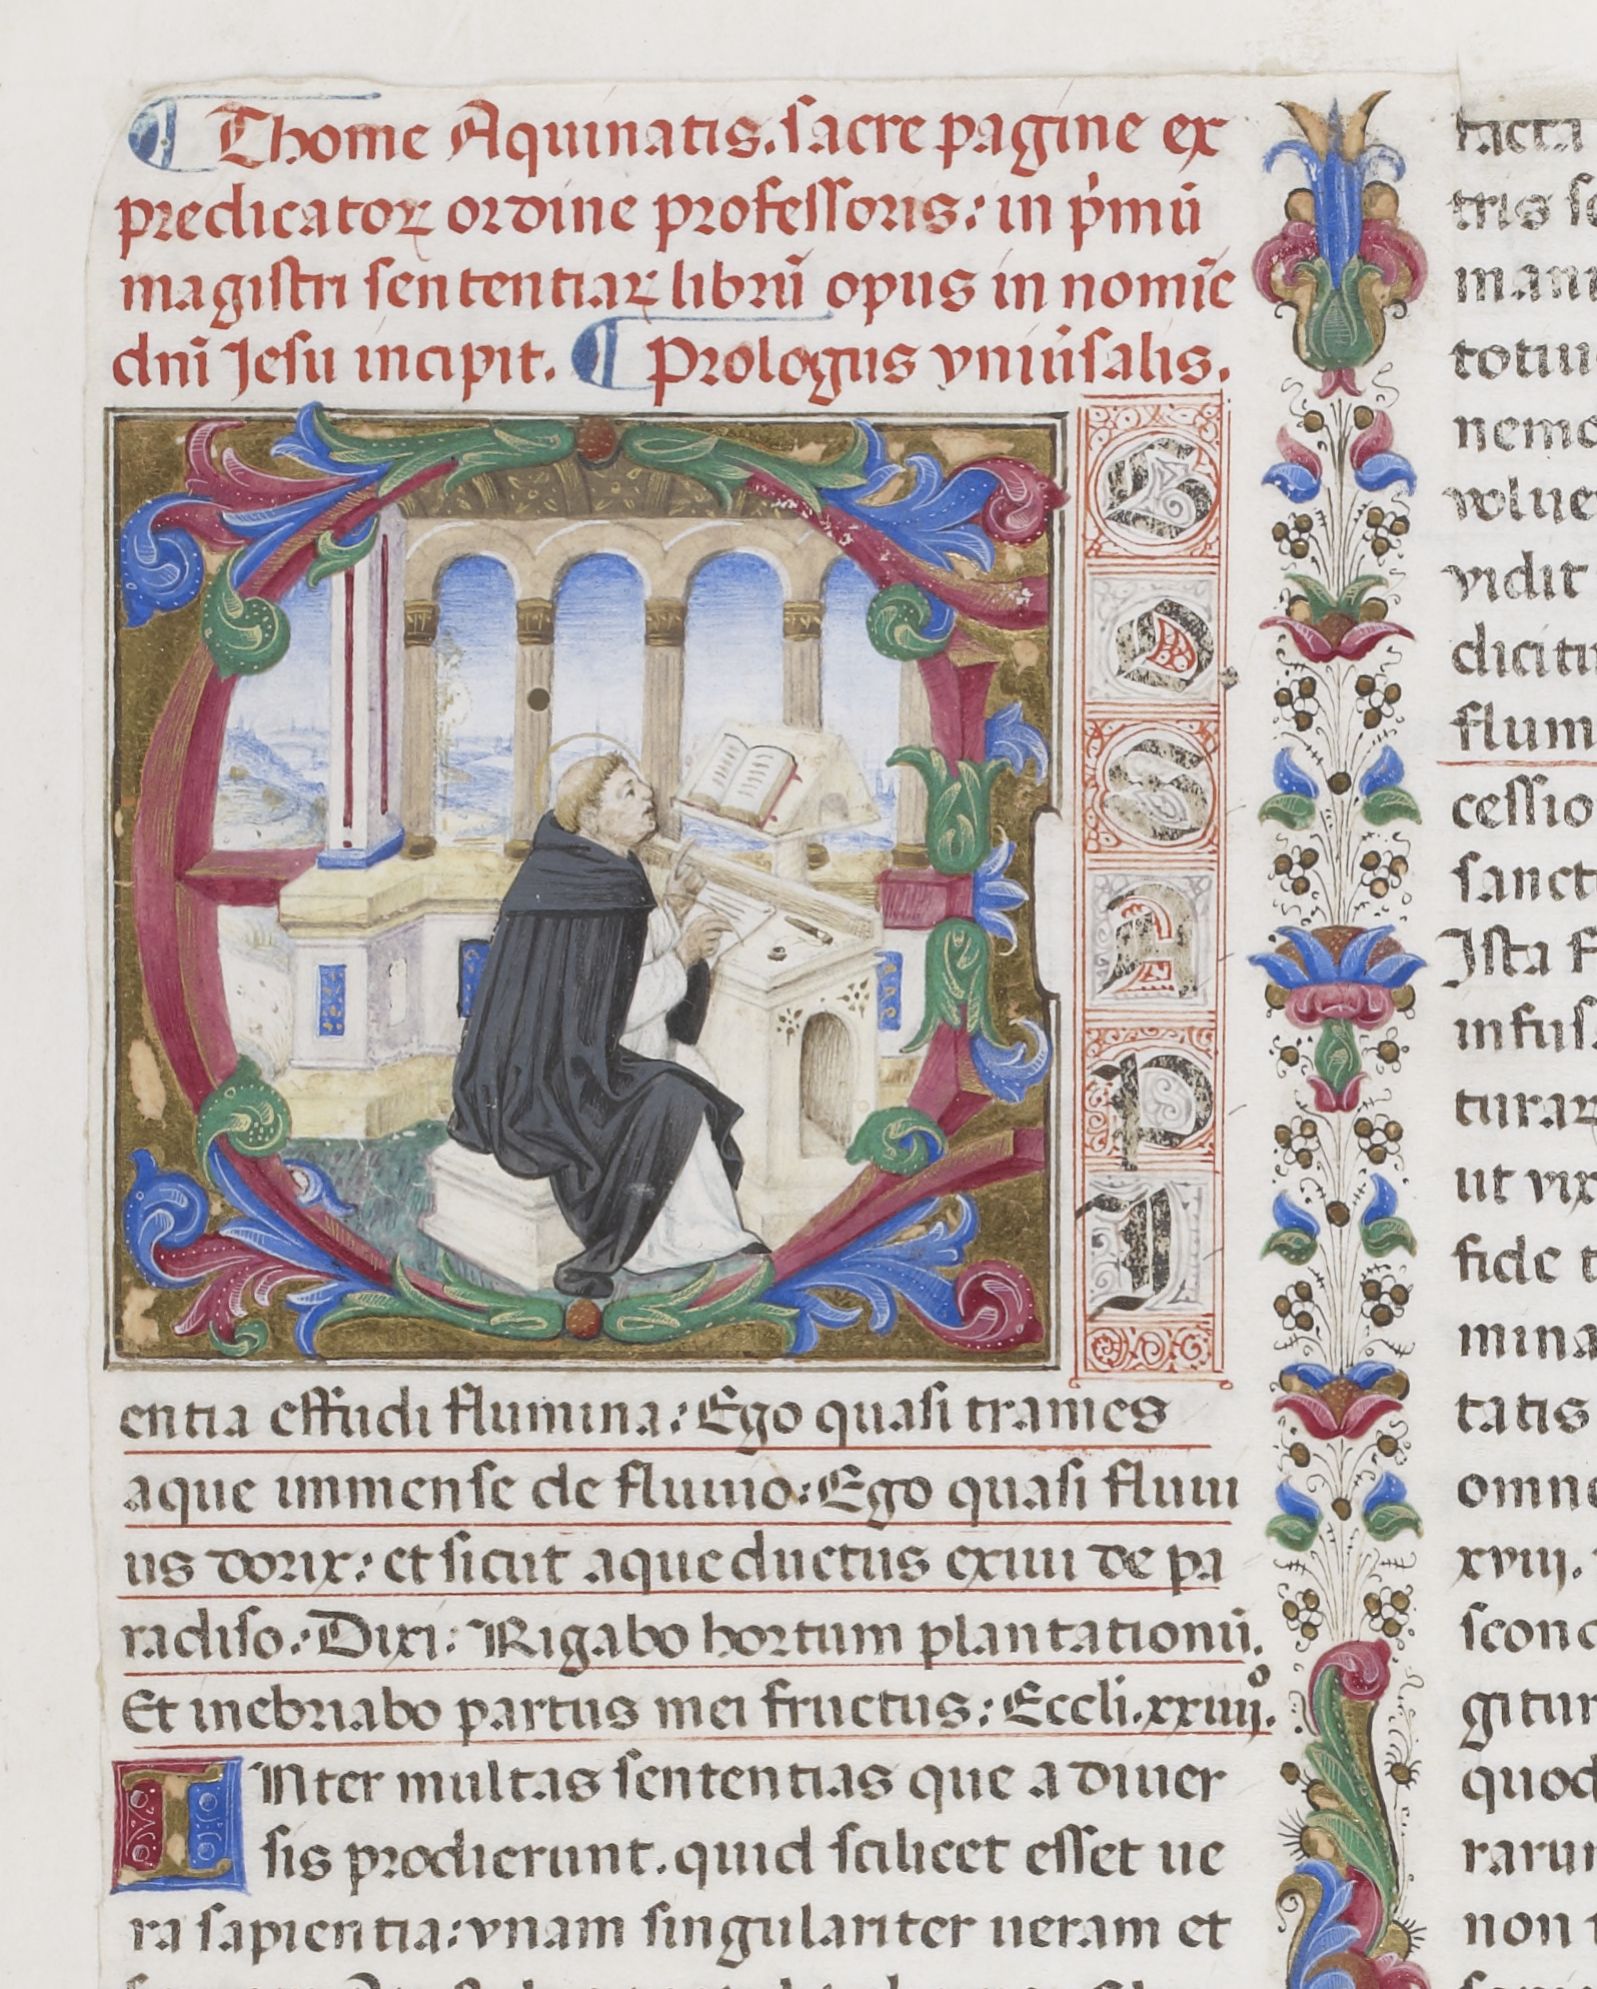 Thome Aquinatis. sacre pagine ex
predicatoꝝ ordine professoris: in p̓mū
magistri sententiaꝝ librū opus in nomīe
dnī Jesu incipit. Prologus vniũsalis.
E
G
O
S
A
P
I
entia effudi flumina: Ego quasi trames
aque immense de fluuio: Ego quasi fluui
us dorix: et sicut aque ductus exiui de pa
radiso. Dixi: Rigabo hortum plantationū.
Et inebriabo partus mei fructus: Eccli. xxiiij.º
INter multas sententias que a diuer
sis prodierunt. quid scilicet esset ue
ra sapientia: vnam singulariter ueram et
tacta
tris
totiu
nemo
volue
vidit
dicitu
flum
cessio
sanct
Ista f
infus
turaꝝ
ut vix
fide t
mina
tatis
omne
xviij.
scond
gitur
quod
rarum
non